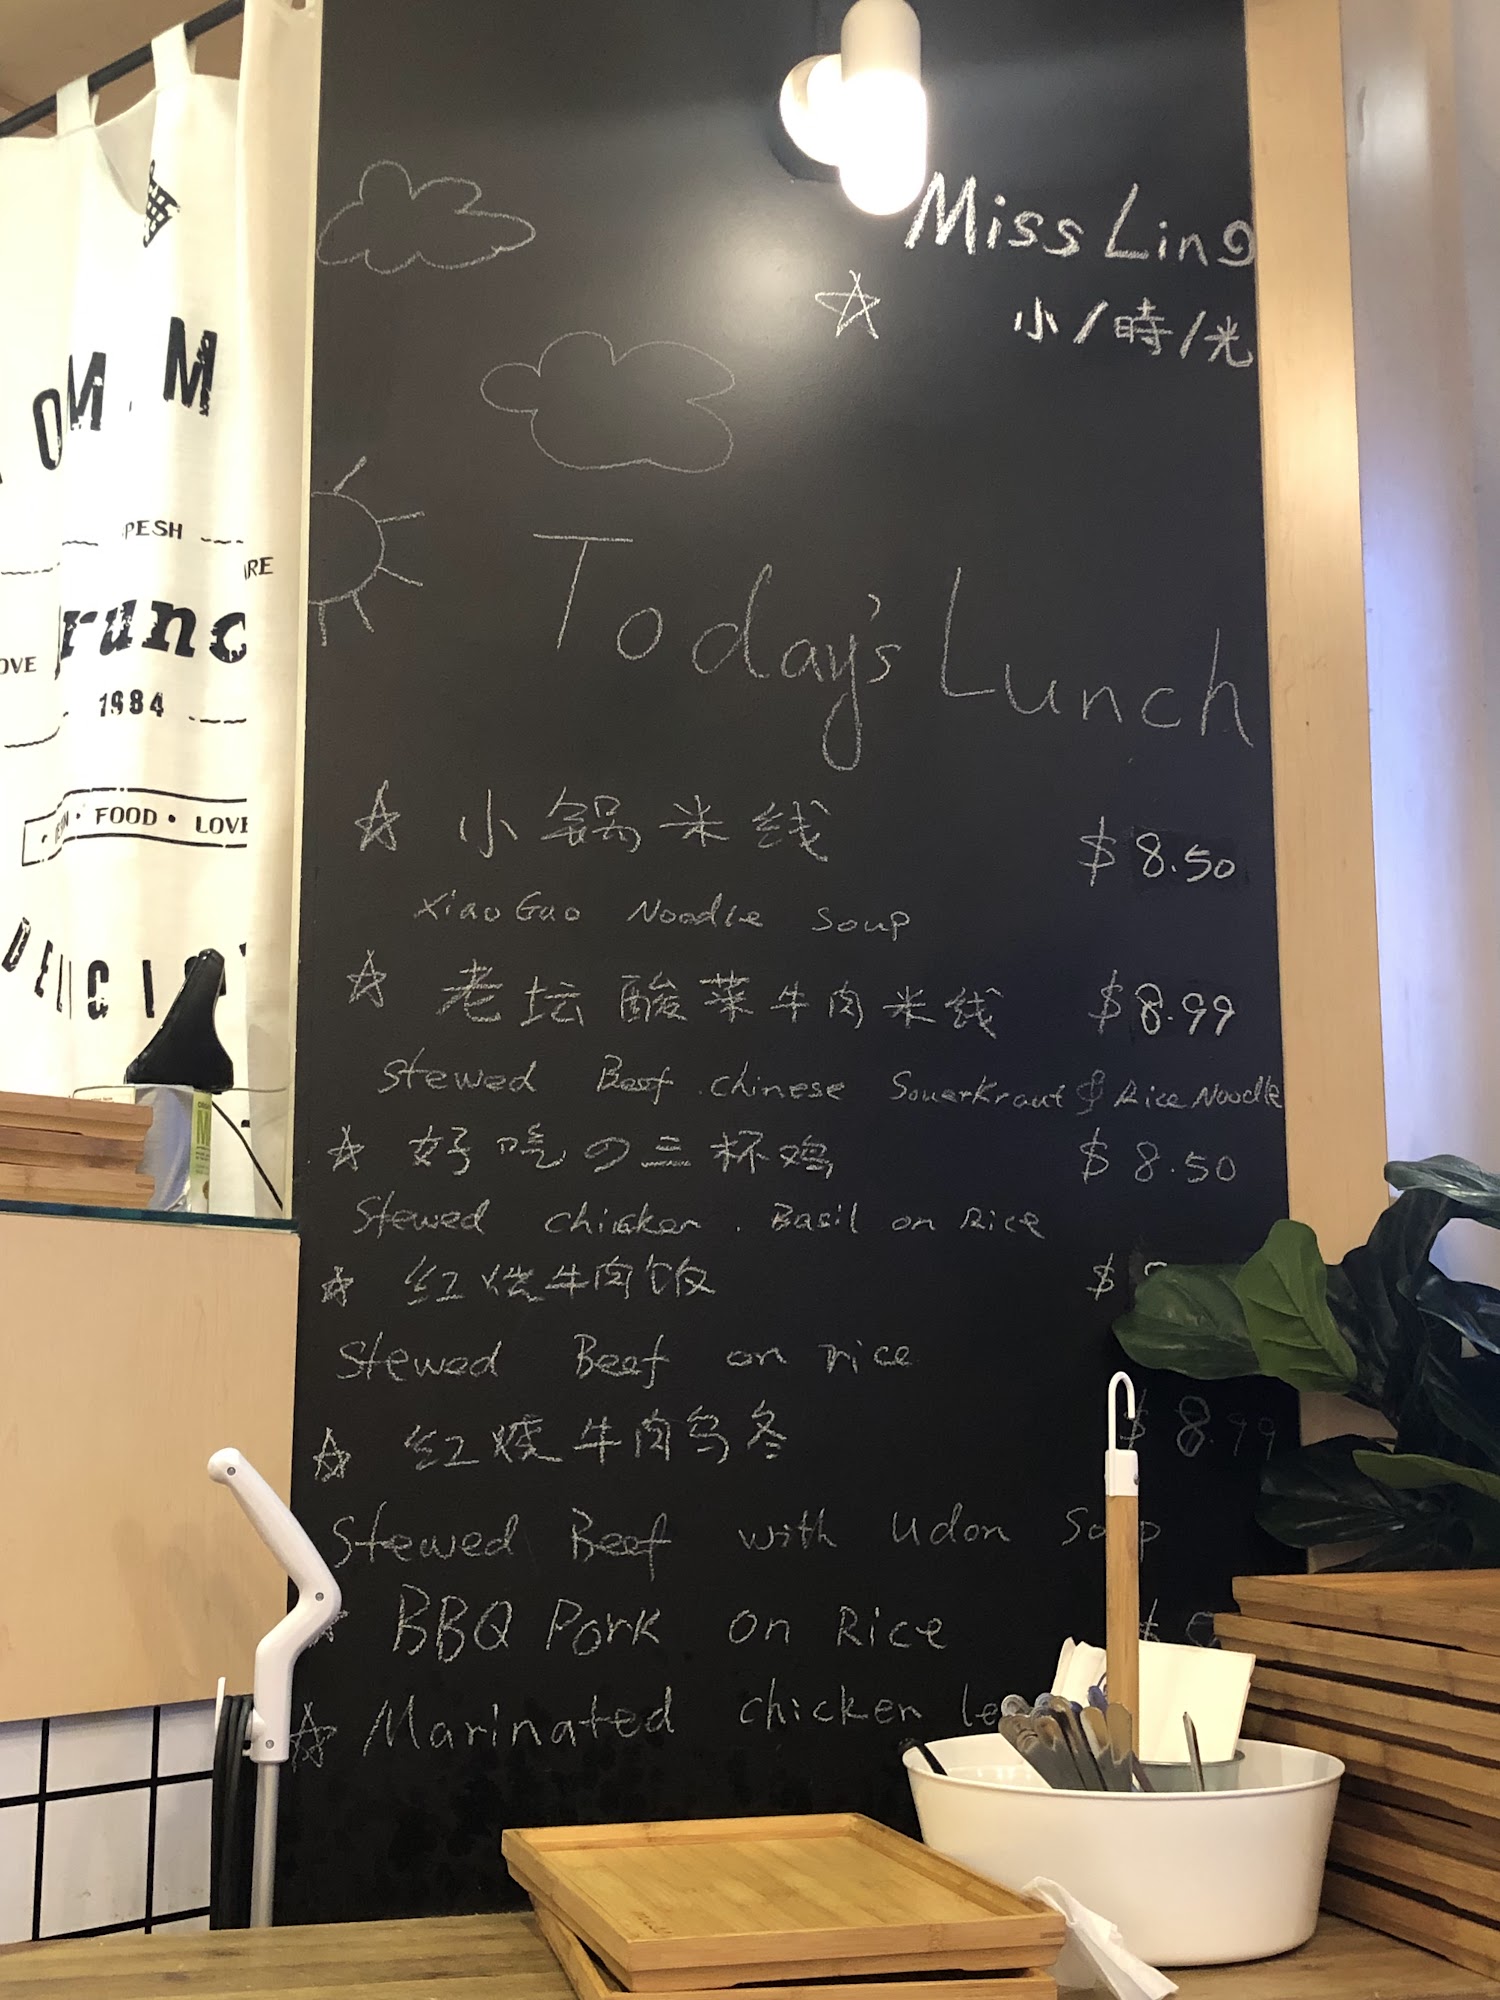 Miss Ling
小/時/光
Today's Lunch
小锅米线 $8.50
XiaoGao Noodle Soup
老坛酸菜牛肉米线 $8.99
Stewed Beef. Chinese Souerkraut & Rice Noodle
好吃の三杯鸡 $8.50
Stewed chicken. Basil on Rice
红烧牛肉饭 $
Stewed Beef on rice
红烧牛肉乌冬 $8.99
Stewed Beef with Udon Soup
BBQ Pork on Rice $
Marinated chicken
OM M
RESH
runc
OVE
1984
FOOD • LOVE
DELICI